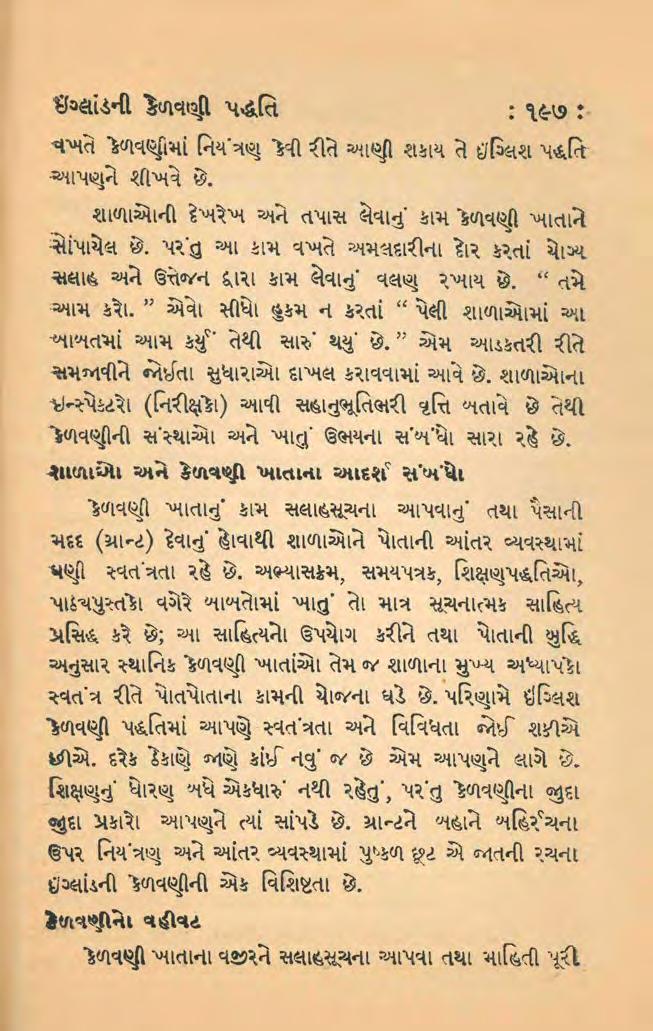 ઇંગ્લાંડની કેળવણી પદ્ધતિ : ૧૯૭ :
વખતે કેળવણીમાં નિયંત્રણ કેવી રીતે આણી શકાય તે ઇંગ્લિશ પદ્ધતિ
આપણને શીખવે છે.
શાળાઓની દેખરેખ અને તપાસ લેવાનું કામ કેળવણી ખાતાને
સોંપાયેલ છે. પરંતુ આ કામ વખતે અમલદારીના દોર કરતાં યોગ્ય
સલાહ અને ઉત્તેજન દ્વારા કામ લેવાનું વલણ રખાય છે. “ તમે
આમ કરો. ” એવો સીધો હુકમ ન કરતાં “ પેલી શાળાઓમાં આ
બાબતમાં આમ કર્યું તેથી સારું થયું છે. ” એમ આડકતરી રીતે
સમજાવીને જોઈતા સુધારાઓ દાખલ કરાવવામાં આવે છે. શાળાઓના
ઇન્સ્પેક્ટરો (નિરીક્ષકો) આવી સહાનુભૂતિભરી વૃત્તિ બતાવે છે તેથી
કેળવણીની સંસ્થાઓ અને ખાતું ઉભયના સંબંધો સારા રહે છે.
શાળાઓ અને કેળવણી ખાતાના આદર્શ સંબંધો
કેળવણી ખાતાનું કામ સલાહસૂચના આપવાનું તથા પૈસાની
મદદ (ગ્રાન્ટ) દેવાનું હોવાથી શાળાઓને પોતાની આંતર વ્યવસ્થામાં
ઘણી સ્વતંત્રતા રહે છે. અભ્યાસક્રમ, સમયપત્રક, શિક્ષણપદ્ધતિઓ,
પાઠ્યપુસ્તકો વગેરે બાબતોમાં ખાતું તો માત્ર સૂચનાત્મક સાહિત્ય
પ્રસિદ્ધ કરે છે; આ સાહિત્યનો ઉપયોગ કરીને તથા પોતાની બુદ્ધિ
અનુસાર સ્થાનિક કેળવણી ખાતાંઓ તેમ જ શાળાના મુખ્ય અધ્યાપકો
સ્વતંત્ર રીતે પોતપોતાના કામની યોજના ઘડે છે. પરિણામે ઇંગ્લિશ
કેળવણી પદ્ધતિમાં આપણે સ્વતંત્રતા અને વિવિધતા જોઈ શકીએ
છીએ. દરેક ઠેકાણે જાણે કાંઈ નવું જ છે એમ આપણને લાગે છે.
શિક્ષણનું ધોરણ બધે એકધારું નથી રહેતું, પરંતુ કેળવણીના જુદા
જુદા પ્રકારો આપણને ત્યાં સાંપડે છે. ગ્રાન્ટને બહાને બહિર્રચના
ઉપર નિયંત્રણ અને આંતર વ્યવસ્થામાં પુષ્કળ છૂટ એ જાતની રચના
ઇંગ્લાંડની કેળવણીની એક વિશિષ્ટતા છે.
કેળવણીનો વહીવટ
કેળવણી ખાતાના વજીરને સલાહસૂચના આપવા તથા માહિતી પૂરી